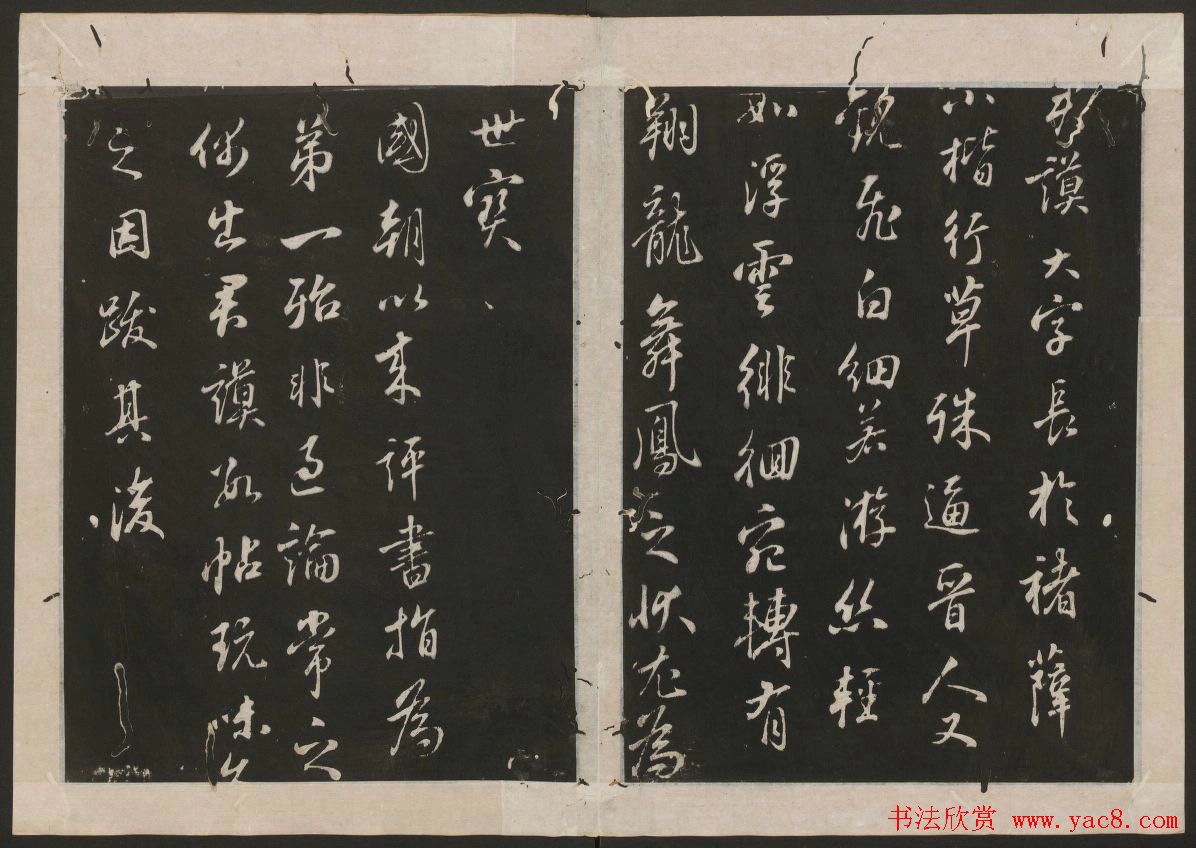 謨大字長於褚薛
小楷行草殊逼晉人又
飛白細若游絲輕
如浮雲徘徊宛轉有
翔龍舞鳳之狀尤為
世寶
國朝以來評書指為
第一殆非過論常之
出君謨數帖玩味久
之因跋其後
书法欣赏 www.yac8.com